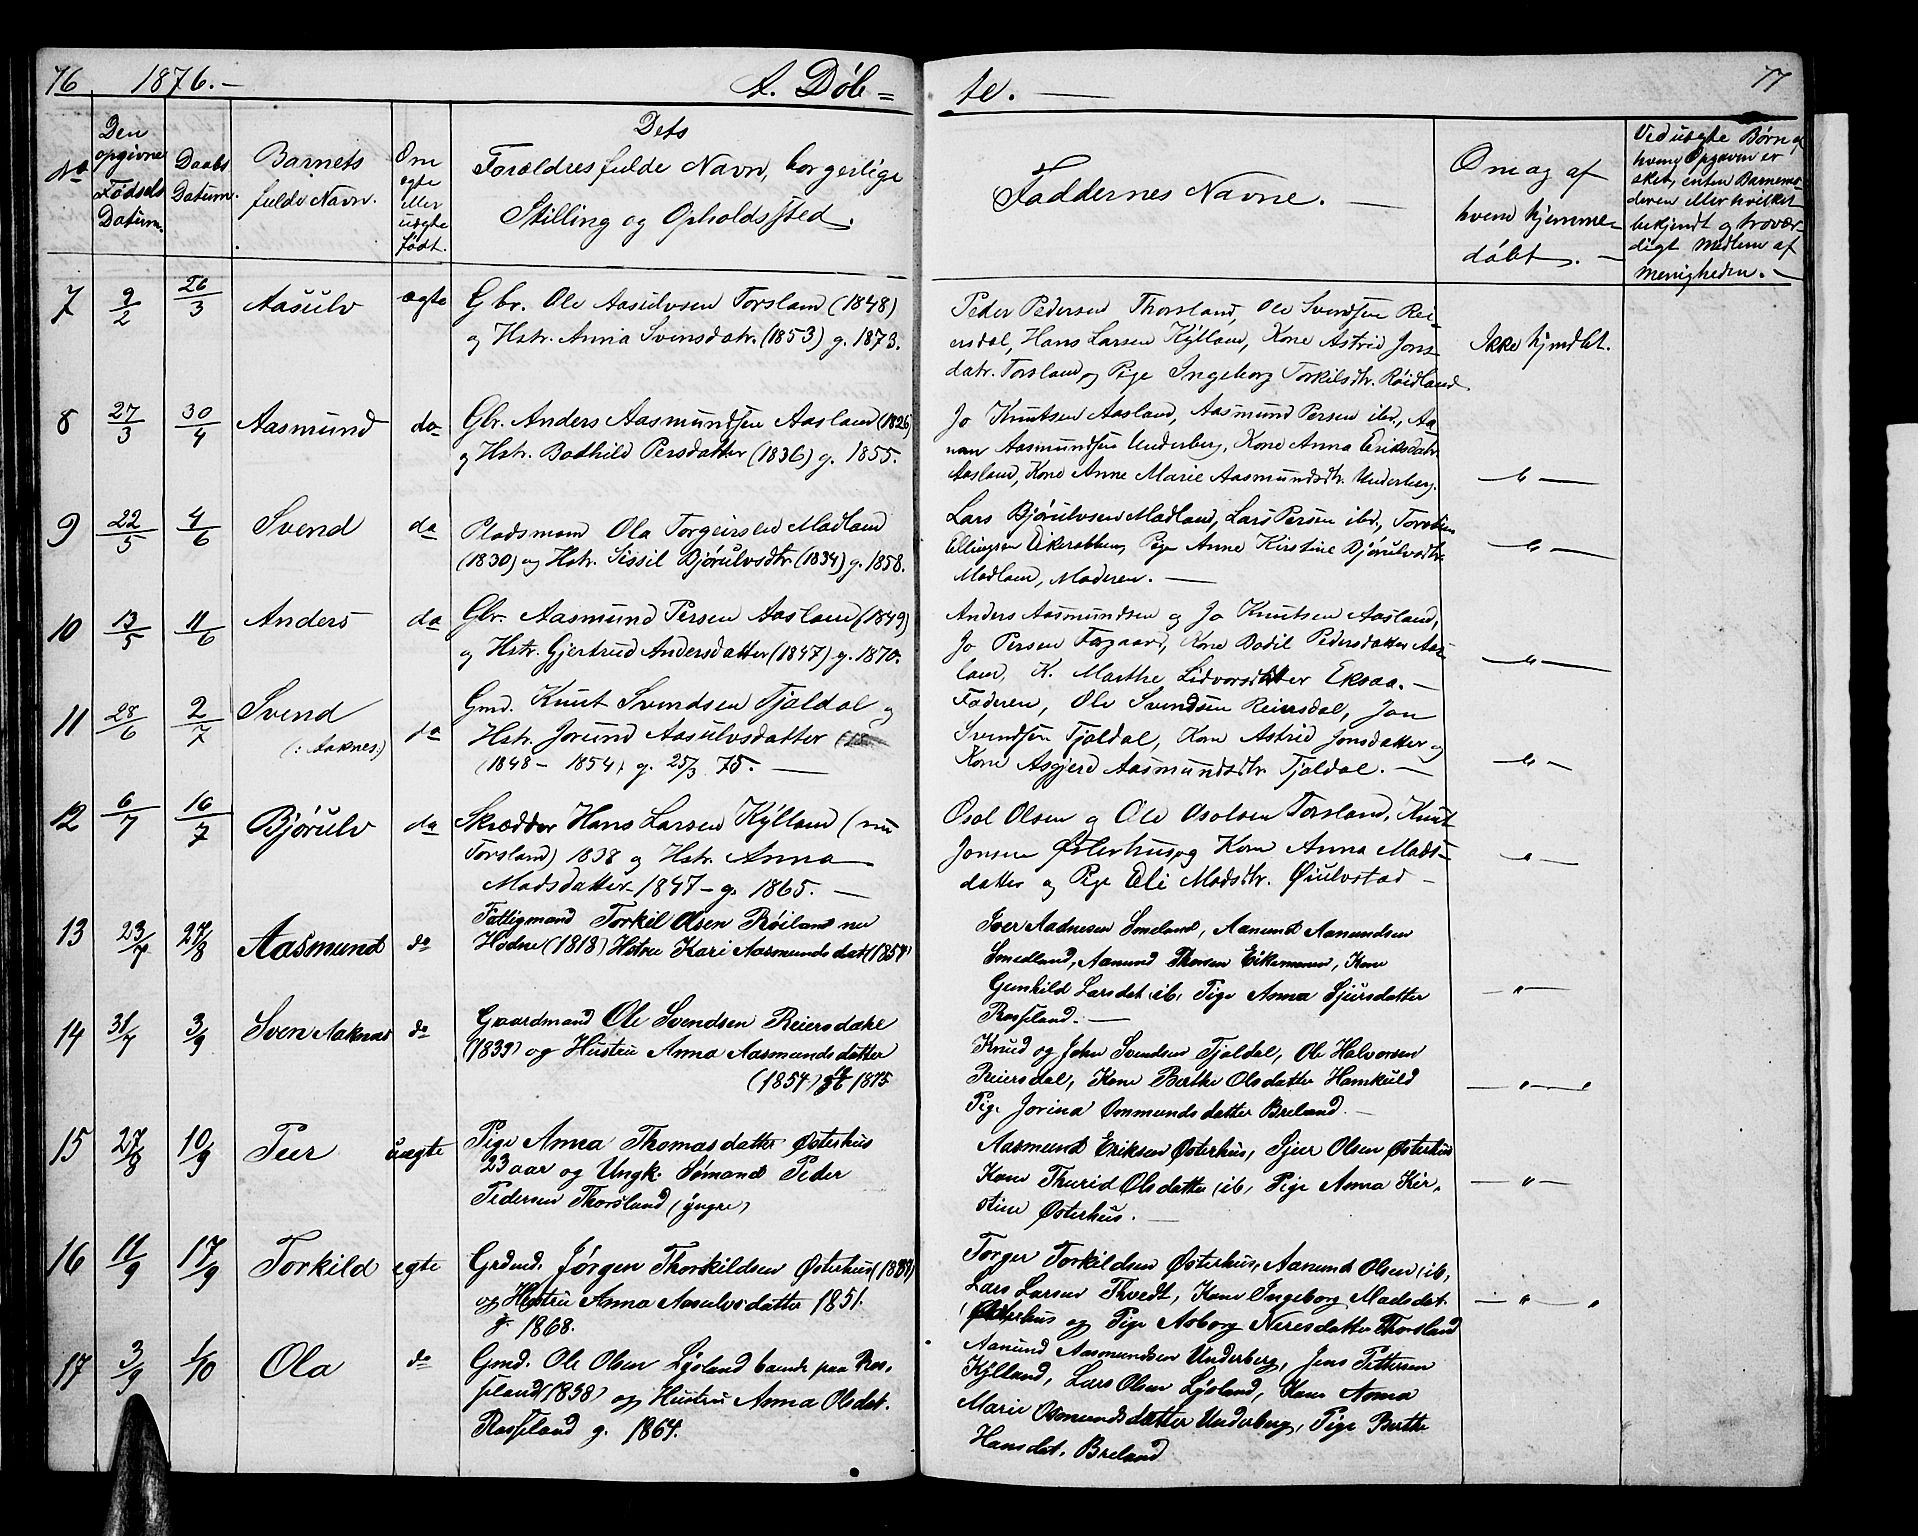 76 1876. — A. Døb = te. — 77
No
Den opgivne Fødsels Datum.
Daabs Datum.
Barnets fulde Navn.
Om ægte eller uægte født.
Dets Forældres fulde Navn, borgerlige Stilling og Opholdssted.
Faddernes Navne. —
Om og af hvem hjemmedøbt. —
Ved uægte Børn, af hvem Opgaven er sket, enten Barnemoderen eller hvilket bekjendt og troværdigt Medlem af Menigheden. —
7 9/2 26/3 Aasulv ægte Gbr. Ole Aasulvsen Torsland (1848)
og Hstr. Anna Svensdatr. (1853) g. 1873.
Peder Pedersen Thorsland, Ole Svendsen Rei-
ersdal, Hans Larsen Kylland, Kone Astrid Jons-
datr. Torsland og Pige Ingeborg Torkilsdtr. Røidland.
Ikke hjemdbt.
8 27/3 30/4 Aasmund do Gbr. Anders Aasmundsen Aasland (1826)
og Hstr. Bothild Persdatter (1836) g. 1855.
Jo Knutsen Aasland, Aasmund Persen ibr., Aa-
nun Aasmundsen Underberg, Kone Anna Eriksdatr.
Aasland, Kone Anne Marie Aasmundsdtr. Underberg.
— " —
9 22/5 4/6 Svend do Pladsmand Ola Torgeirsen Madland
(1830) og Hstr. Sissil Bjørulvsdtr. (1834) g. 1858.
Lars Bjørulvsen Madland, Lars Persen ibr.,
Ellingsen Eikerabben, Pige Anne Kirstine Bjørulvsdtr.
Madland, Moderen. —
— " —
10 13/5 11/6 Anders do Gbr. Aasmund Persen Aasland (1849)
og Hstr. Gjertrud Andersdatter (1847) g. 1870.
Anders Aasmundsen og Jo Knutsen Aasland,
Jo Persen Fagaard, Kone Bodil Pedersdatter Aas-
land, K. Marthe Lidvorsdatter Eksaa. —
— " —
11 28/6 2/7 Svend
(: Aaknes:) do
Gmd. Knut Svendsen Tjaldal og
Hstr. Jorund Aasulvsdatter
(1848 – 1854) g. 25/3 75. —
Faderen, Ole Svendsen Reiersdal, Jon
Svendsen Tjaldal, Kone Astrid Jonsdatter og
Kone Asgjerd Aasmundsdtr. Tjaldal. —
— " —
12 6/7 16/7 Bjørulv do Skrædder Hans Larsen Kylland (nu
Torsland) 1838 og Hstr. Anna
Madsdatter 1847 – g. 1865. —
Osol Olsen og Ole Osolsen Torsland, Knut
Jonsen Østerhus, og Kone Anna Mads-
datter og Pige Eli Madsdtr. Øiulvstad —
— " —
13 23/7 27/8 Aasmund do Fattigmand Torkil Olsen Røiland nu
Hodne (1818) Hstru Kari Aasmundsdat (1854)
Iver Aadnesen Smeland, Aanund Aanundsen
Smedland, Aanund Thorsen Eikemoen, Kone
Gunhild Larsdat. ib, Pige Anna Sjursdatter
Rosseland. —
— " —
14 31/7 3/9 Sven Aaknas do Gaardmand Ole Svendsen Reiersdahl
(1839) og Hustru Anna Aasmundsdatter
(1854) 1875
Knud og John Svendsen Tjaldal, Ole Halvorsen
Reiersdal, Kone Berthe Olsdatter Homkuld
Pige Jorina Ommundsdatter Breland. —
— " —
15 27/8 10/9 Peer uægte Pige Anna Thomasdatter Østerhus
23 aar og Ungk. Sømand Peder
Pedersen Thorsland (yngre)
Aasmund Eriksen Østerhus, Sjer Olsen Østerhus
Kone Thurid Olsdatter ib, Pige Anna Kir-
stine Østerhus. —
— " —
16 11/9 17/9 Torkild egte Grdmd. Jørgen Thorkildsen Østerhus
og Hustru Anna Aasulvsdatter 1851.
g. 1868.
Torger Torkildsen Østerhus, Aanund Olsen ib,
Lars Larsen Thvedt, Kone Ingeborg Madsdat.
Østerhus og Pige Aaborg Neresdatter Thorsland
— " — "
17 3/9 1/10 Ola do Gmd. Ole Olsen Lysland boende paa Ros-
seland (1838) og Hustru Anna Olsdat.
Rosseland g. 1864.
Aanund Aasmundsen Underberg, Jens Pettersen
Kylland, Lars Olsen Lysland, Kone Anna
Marie Osmundsdatter Underberg, Pige Berthe
Hansdat. Breland